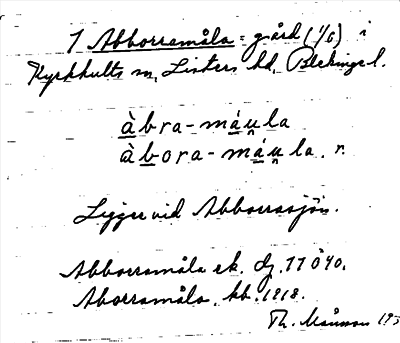 1 Abborramåla = gård (1/6) i
Kyrkhults sn, Listers hd, Blekinge l.
àbra-máu̯la
àbora-máu̯la. r.
Ligger vid Abborrasjön.
Abborramåla ek. dj. 77 Ö 40.
Aborramåla, kb. 1918.
Th. Månsson 193